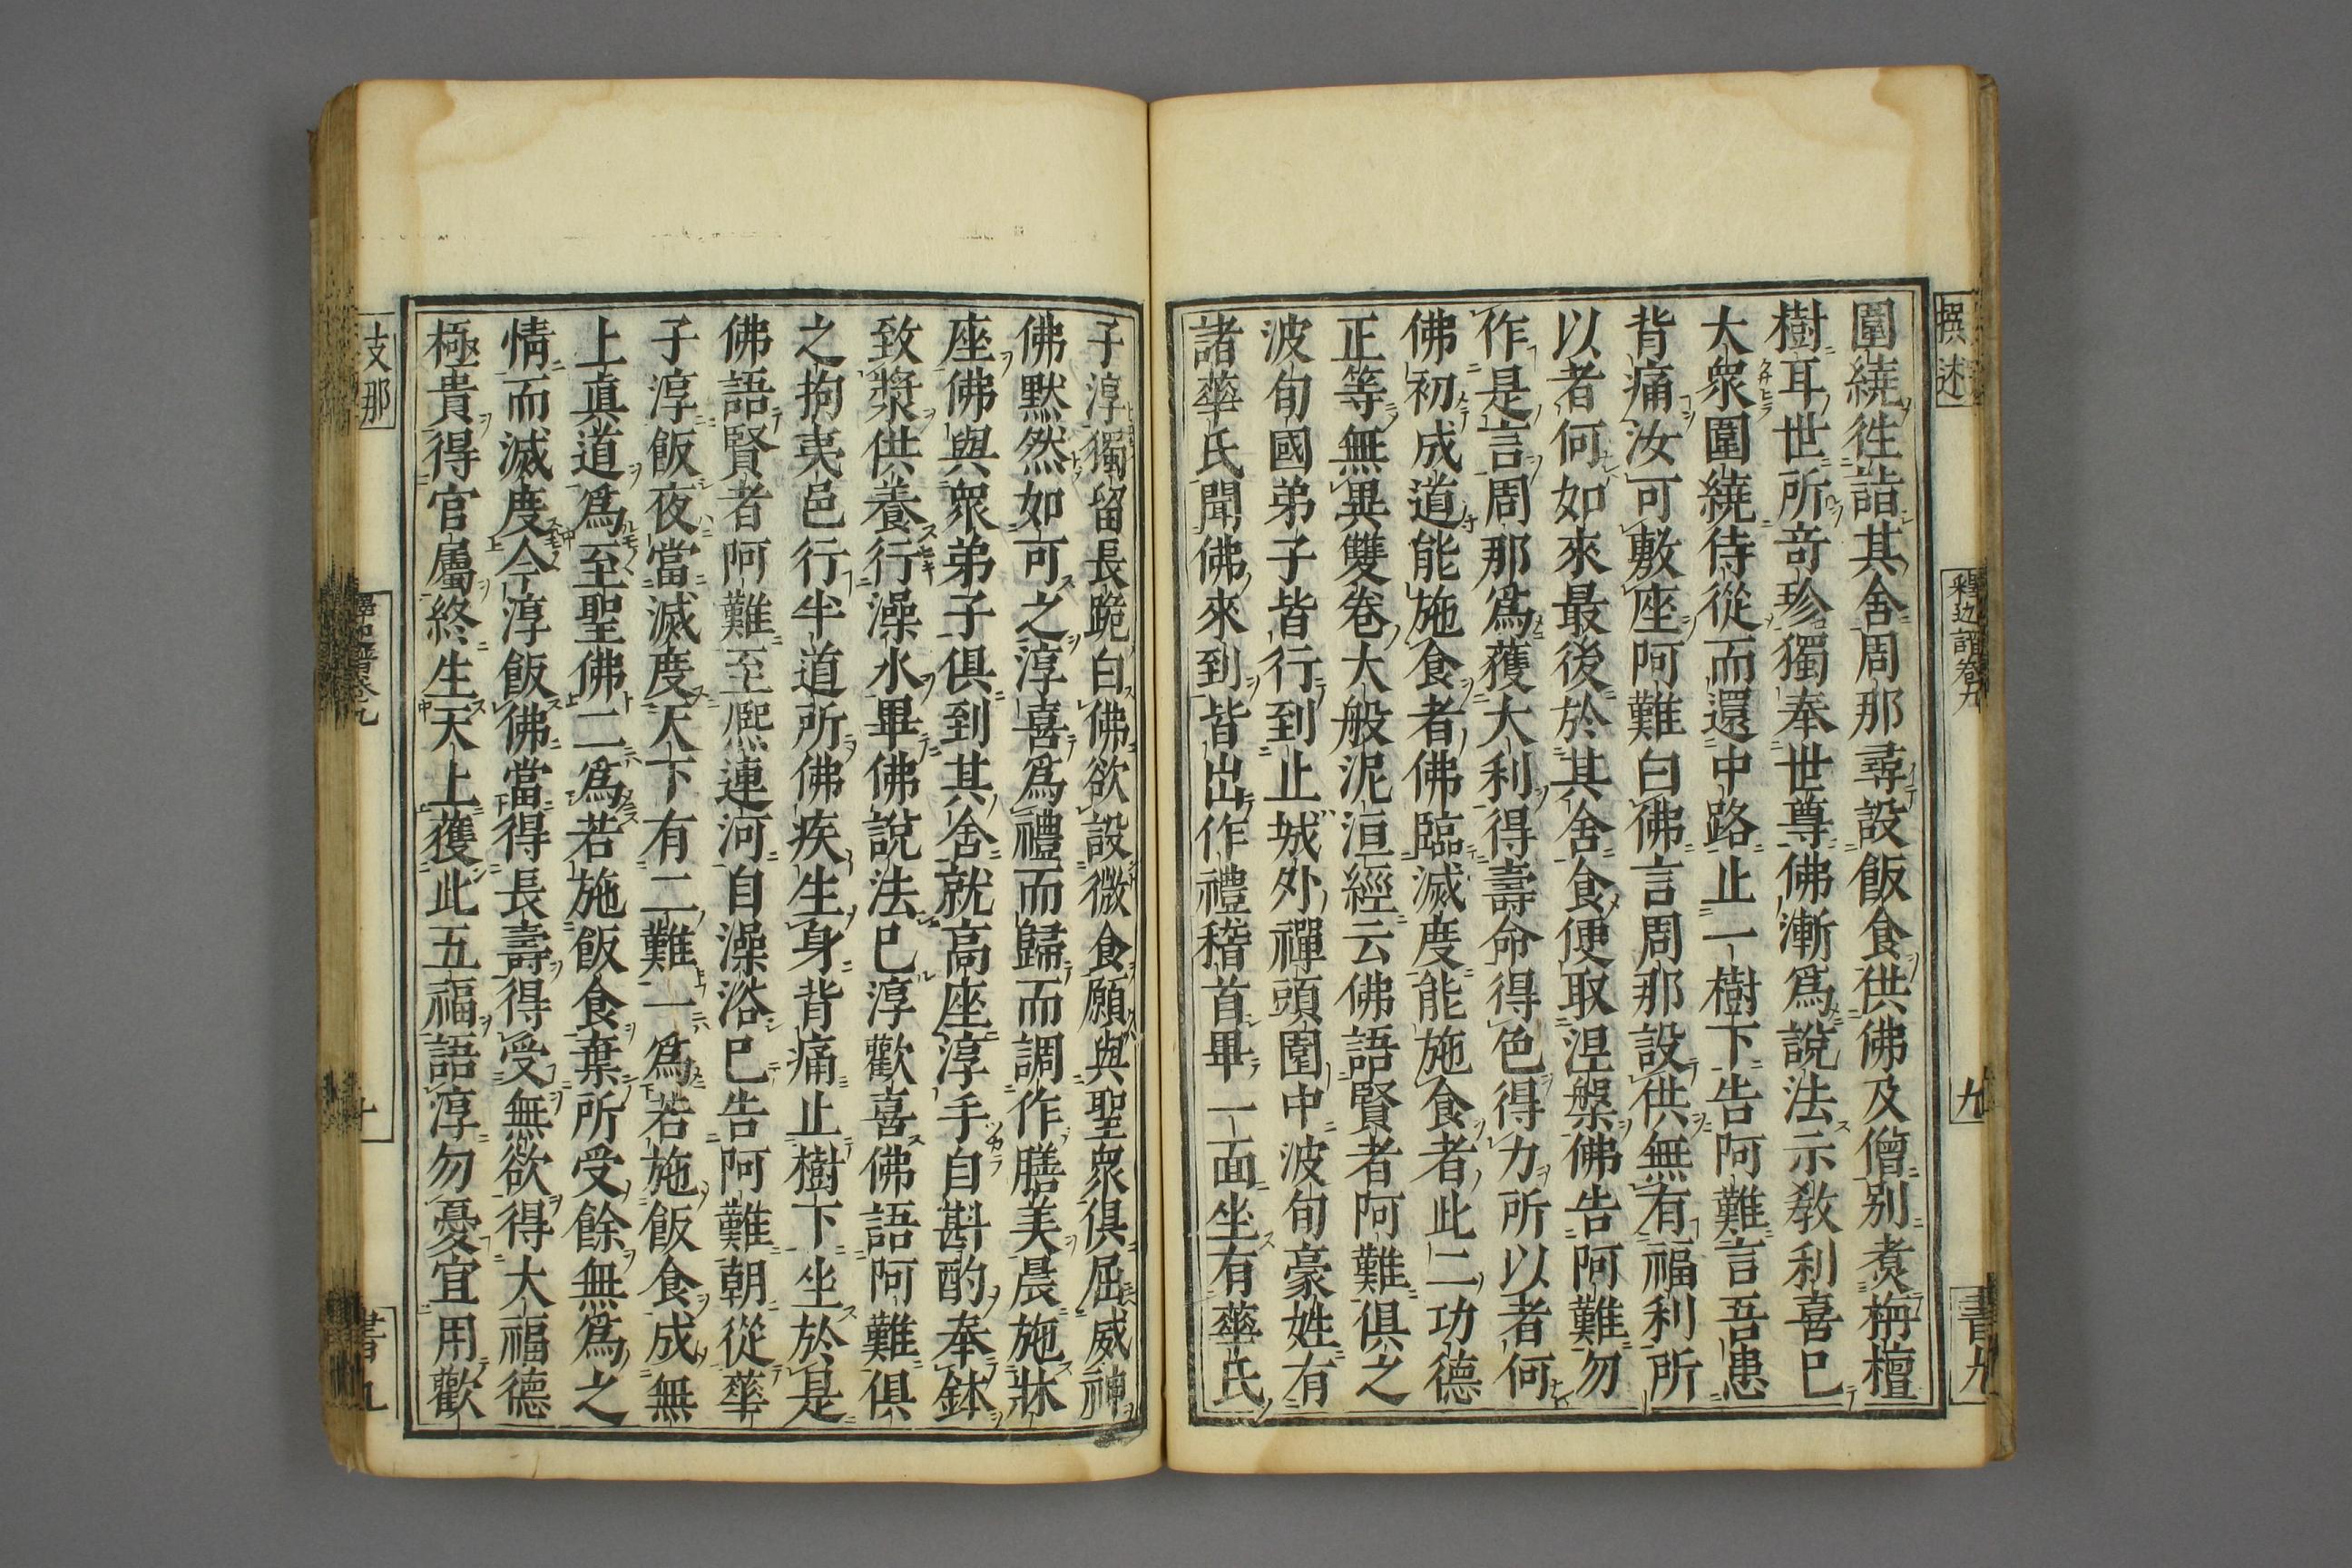 撰述
釋迦譜卷九
九
書九
圍繞徃詣其舍周那尋設飯食供佛及僧別煑栴檀
樹耳世所竒珍獨奉世尊佛漸爲說法示教利喜巳
大衆圍繞侍從而還中路止一樹下告阿難言吾患
背痛汝可敷座阿難白佛言周那設供無有福利所
以者何如來最後於其舍食便取涅槃佛告阿難勿
作是言周那爲獲大利得壽命得色得力所以者何
佛初成道能施食者佛臨滅度能施食者此二功德
正等無異雙卷大般泥洹經云佛語賢者阿難俱之
波旬國弟子皆行到止城外禪頭園中波旬豪姓有
諸華氏聞佛來到皆出作禮稽首畢一面坐有華氏
子淳獨留長跪白佛欲設微食願與聖衆俱屈威神
佛默然如可之淳喜爲禮而歸而調作膳美晨施牀
座佛與衆弟子俱到其舍就高座淳手自斟酌奉鉢
致漿供養行澡水畢佛說法巳淳歡喜佛語阿難俱
之拘夷邑行半道所佛疾生身背痛止樹下坐於是
佛語賢者阿難至熈連河自澡浴巳告阿難朝從華
子淳飯夜當滅度天下有二難一爲若施飯食成無
上真道爲至聖佛二爲若施飯食棄所受餘無爲之
情而滅度今淳飯佛當得長壽得受無欲得大福德
極貴得官屬終生天上獲此五福語淳勿憂宜用歡
支那
譜卷九
十
書九